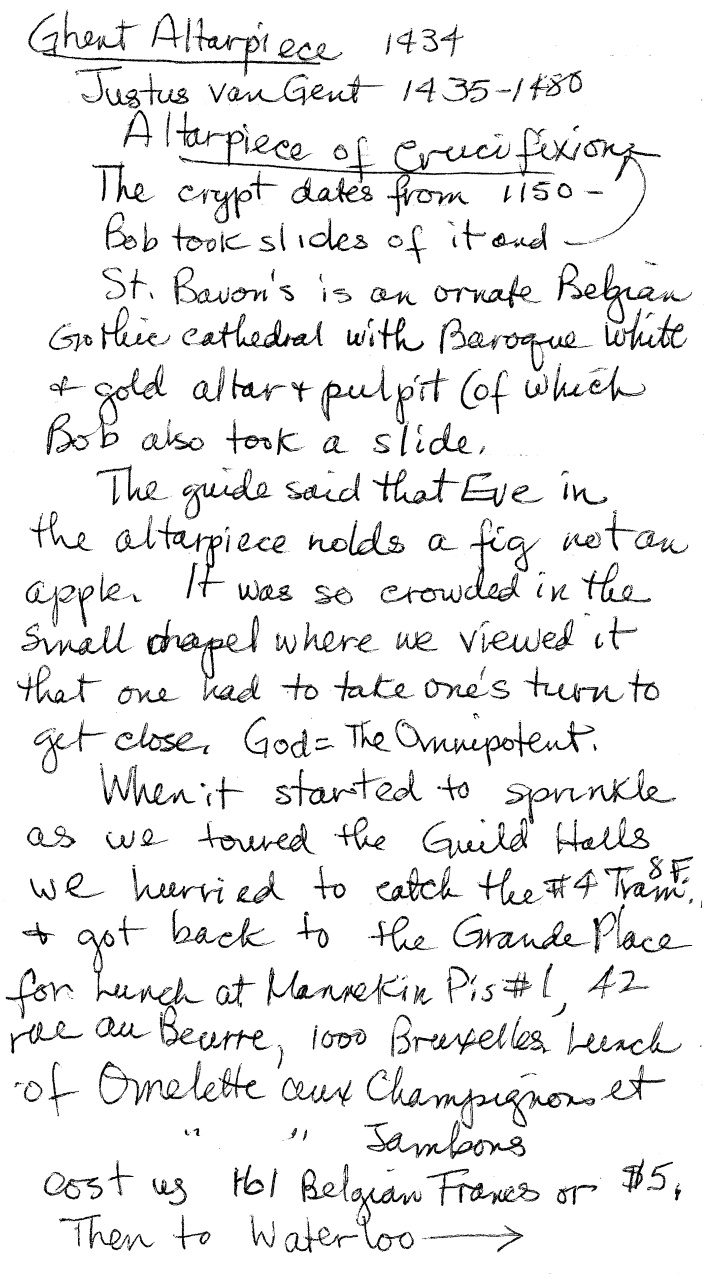 Ghent Altarpiece 1434
Justus van Gent 1435-1480
Altarpiece of Crucifixion
The crypt dates from 1150 -
Bob took slides of it and
St. Bavon's is an ornate Belgian
Gothic cathedral with Baroque white
& gold altar & pulpit (of which
Bob also took a slide.
The guide said that Eve in
the altarpiece holds a fig not an
apple. It was so crowded in the
small chapel where we viewed it
that one had to take one's turn to
get close. God = The Omnipotent.
When it started to sprinkle
as we toured the Guild Halls
we hurried to catch the #4 Tram 8F.
& got back to the Grande Place
for lunch at Mannekin Pis #1, 42
rue au Beurre, 1000 Bruxelles. Lunch
of Omelette aux Champignons et
" " Jambons
cost us 161 Belgian Francs or $5.
Then to Waterloo →